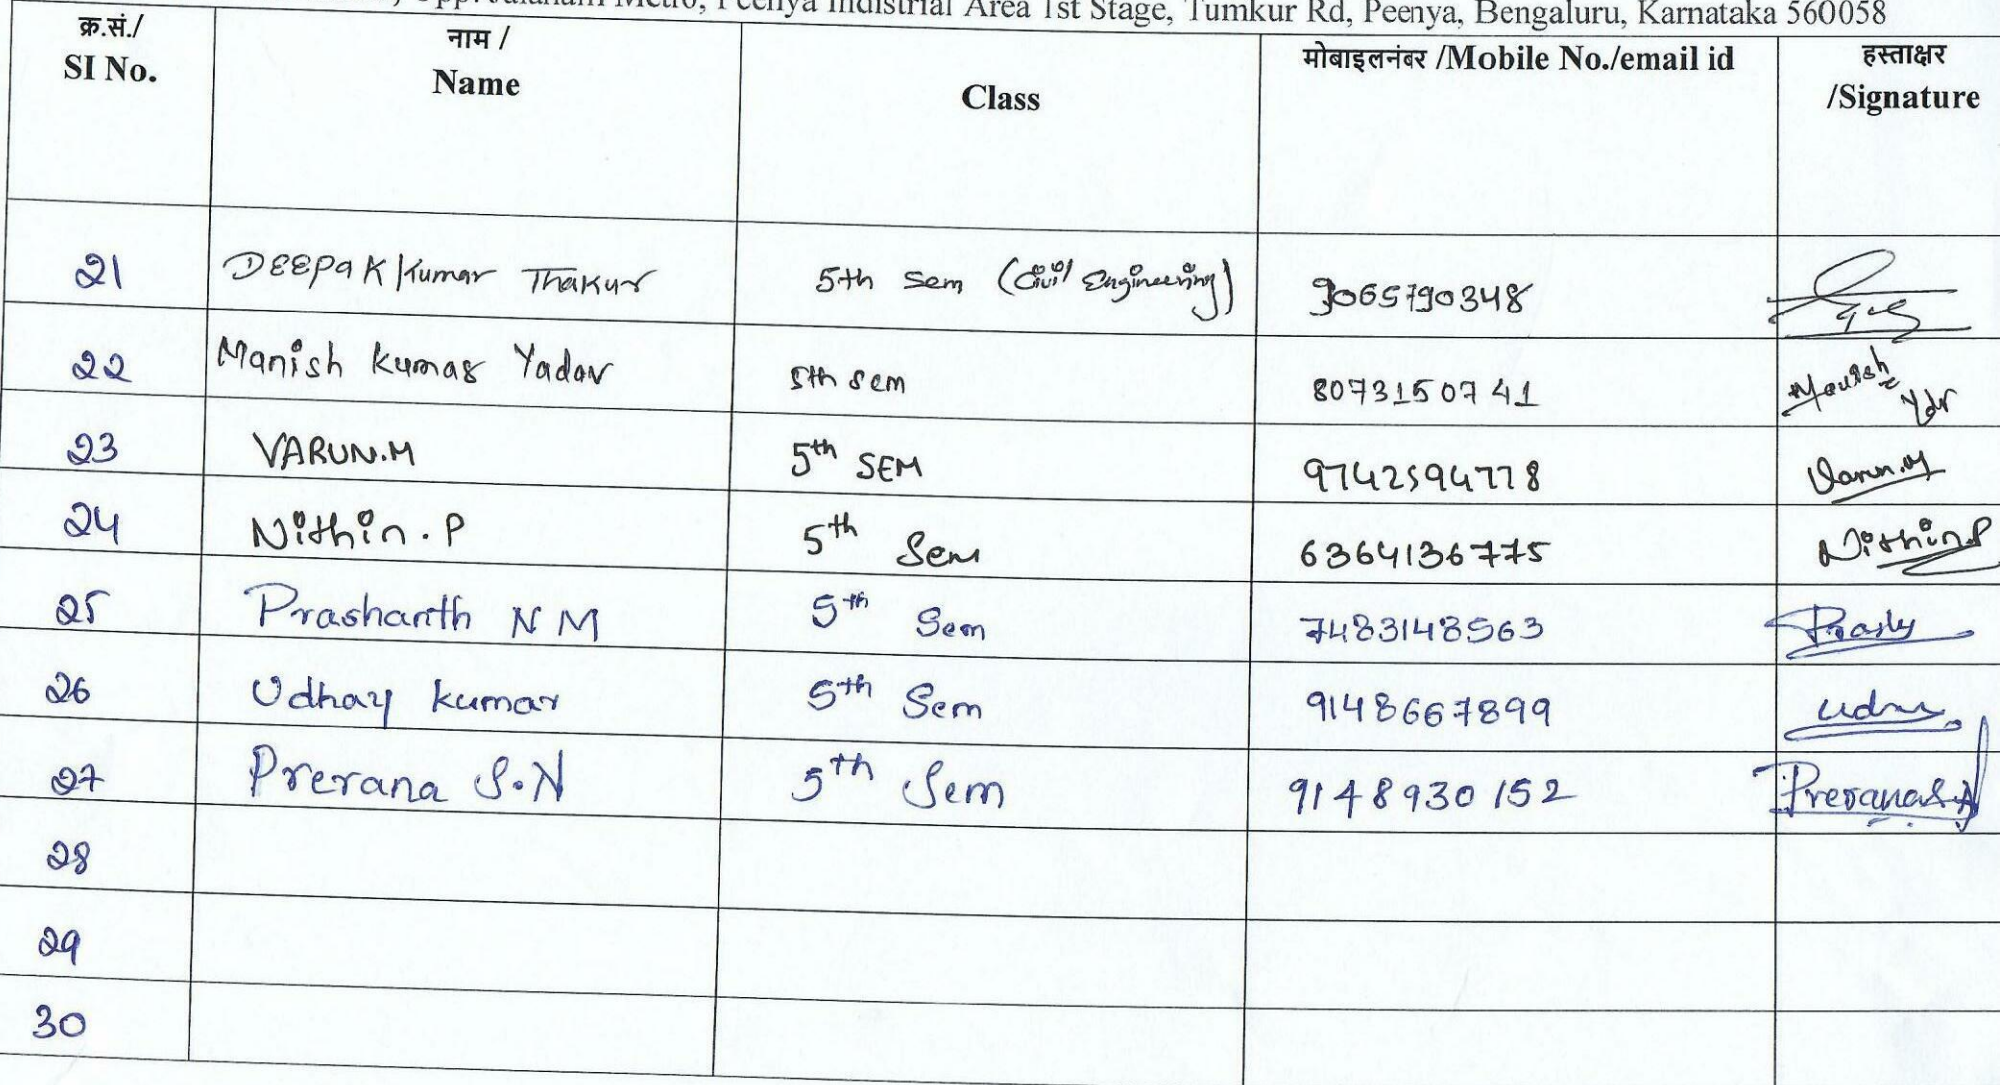 Metro, Peenya Indistrial Area 1st Stage, Tumkur Rd, Peenya, Bengaluru, Karnataka 560058
क्र.सं./ नाम / मोबाइलनंबर /Mobile No./email id हस्ताक्षर
SI No. Name Class /Signature
21 DEEPaK Kumar Thakur 5th Sem (Civil Engineering) 9065790348
22 Manish Kumar Yadav 5th sem 8073150741 Manish Ydv
23 VARUN.M 5th SEM 9742594778 Varun.M
24 Nithin.P 5th Sem 6364136775 Nithin.P
25 Prashanth N M 5th Sem 7483148563
26 Udhay Kumar 5th Sem 9148667899
27 Prerana S.N 5th Sem 9148930152 Prerana S.N
28
29
30